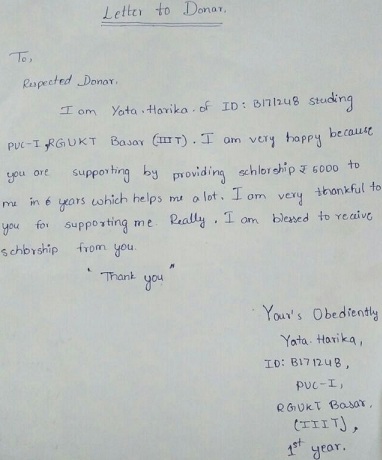 Letter to Donar.
To,
Respected Donor,
I am Yata.Harika.of ID: B171248 studing
PUC-I ,RGUKT Basar (IIIT). I am very happy because
you are supporting by providing schlorship ₹ 6000 to
me in 6 years which helps me a lot. I am very thankful to
you for supporting me. Really, I am blessed to receive
schlorship from you.
"Thank you"
Your's Obediently
Yata.Harika,
ID: B171248,
PUC-I,
RGUKT Basar,
(IIIT),
1st year.